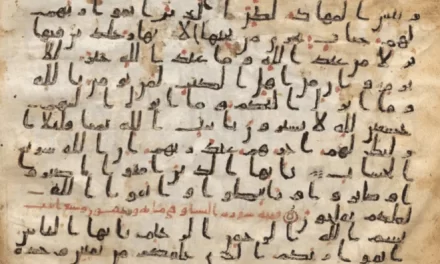 وبئس المهاد لكن الذين اتقوا ربهم
لهم جنات تجري من تحتها الانهار خلدين فيها
نزلا من عند الله وما عند الله خير للا
برار وان من اهل الكتب لمن يومن بالله
وما انزل اليكم وما انزل اليهم
خشعين لله لا يشترون بايت الله ثمنا قليلا
اولئك لهم اجرهم عند ربهم ان الله سريع
الحساب يايها الذين امنوا اصبروا
وصابروا ورابطوا واتقوا الله
لعلكم تفلحون سورة النساء
بسم الله الرحمن الرحيم يايها الناس
اتقوا ربكم الذي خلقكم من نفس وحدة